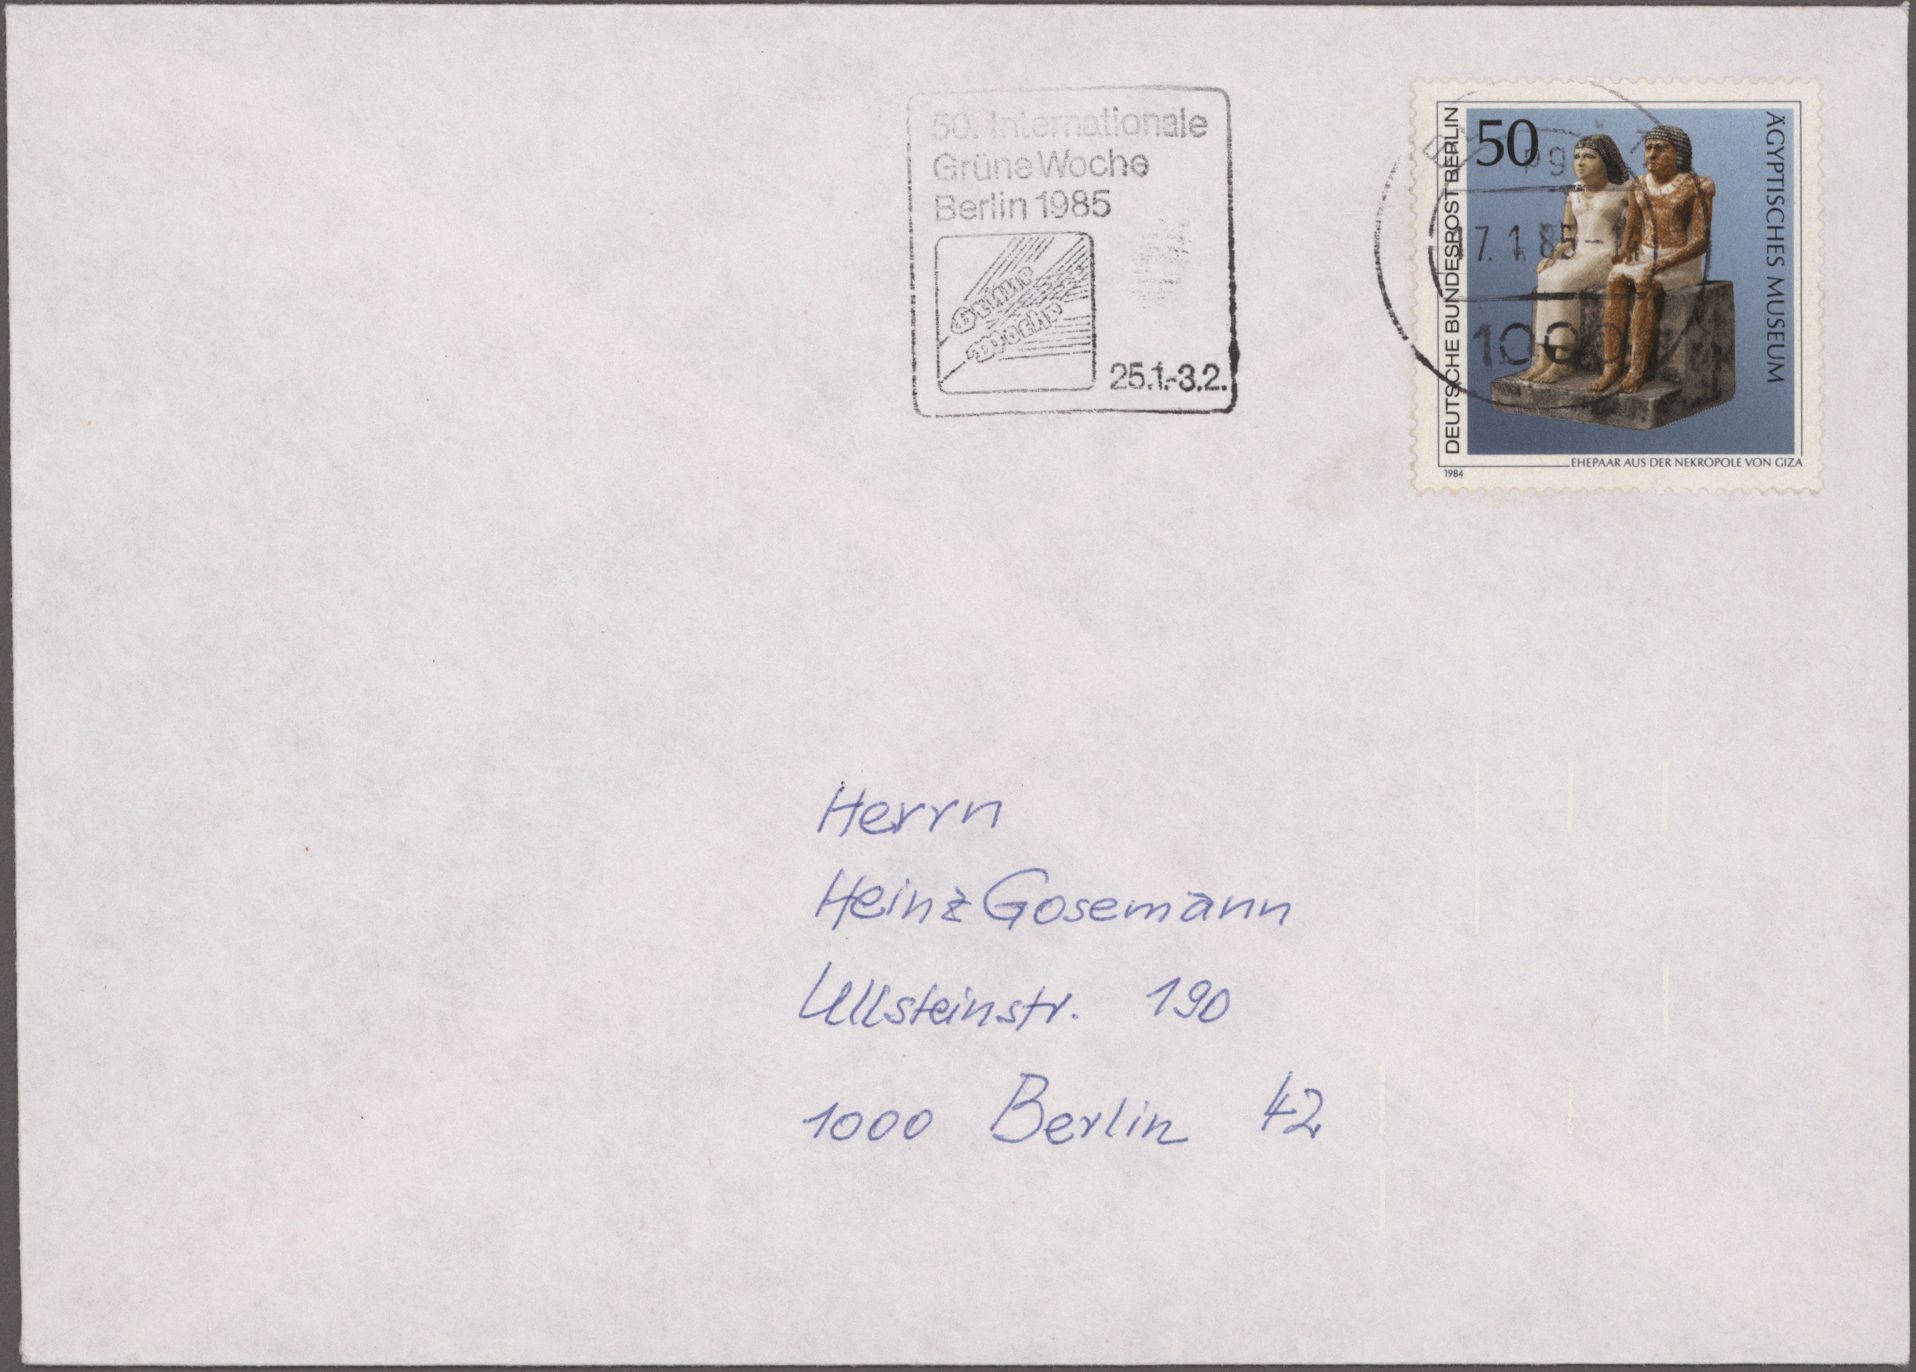 50. Internationale
Grüne Woche
Berlin 1985
Grüne
Woche
25.1.-3.2.
DEUTSCHE BUNDESPOST BERLIN
50
ÄGYPTISCHES MUSEUM
17.1.85
1000
EHEPAAR AUS DER NEKROPOLE VON GIZA
1984
Herrn
Heinz Gosemann
Ullsteinstr. 190
1000 Berlin 42